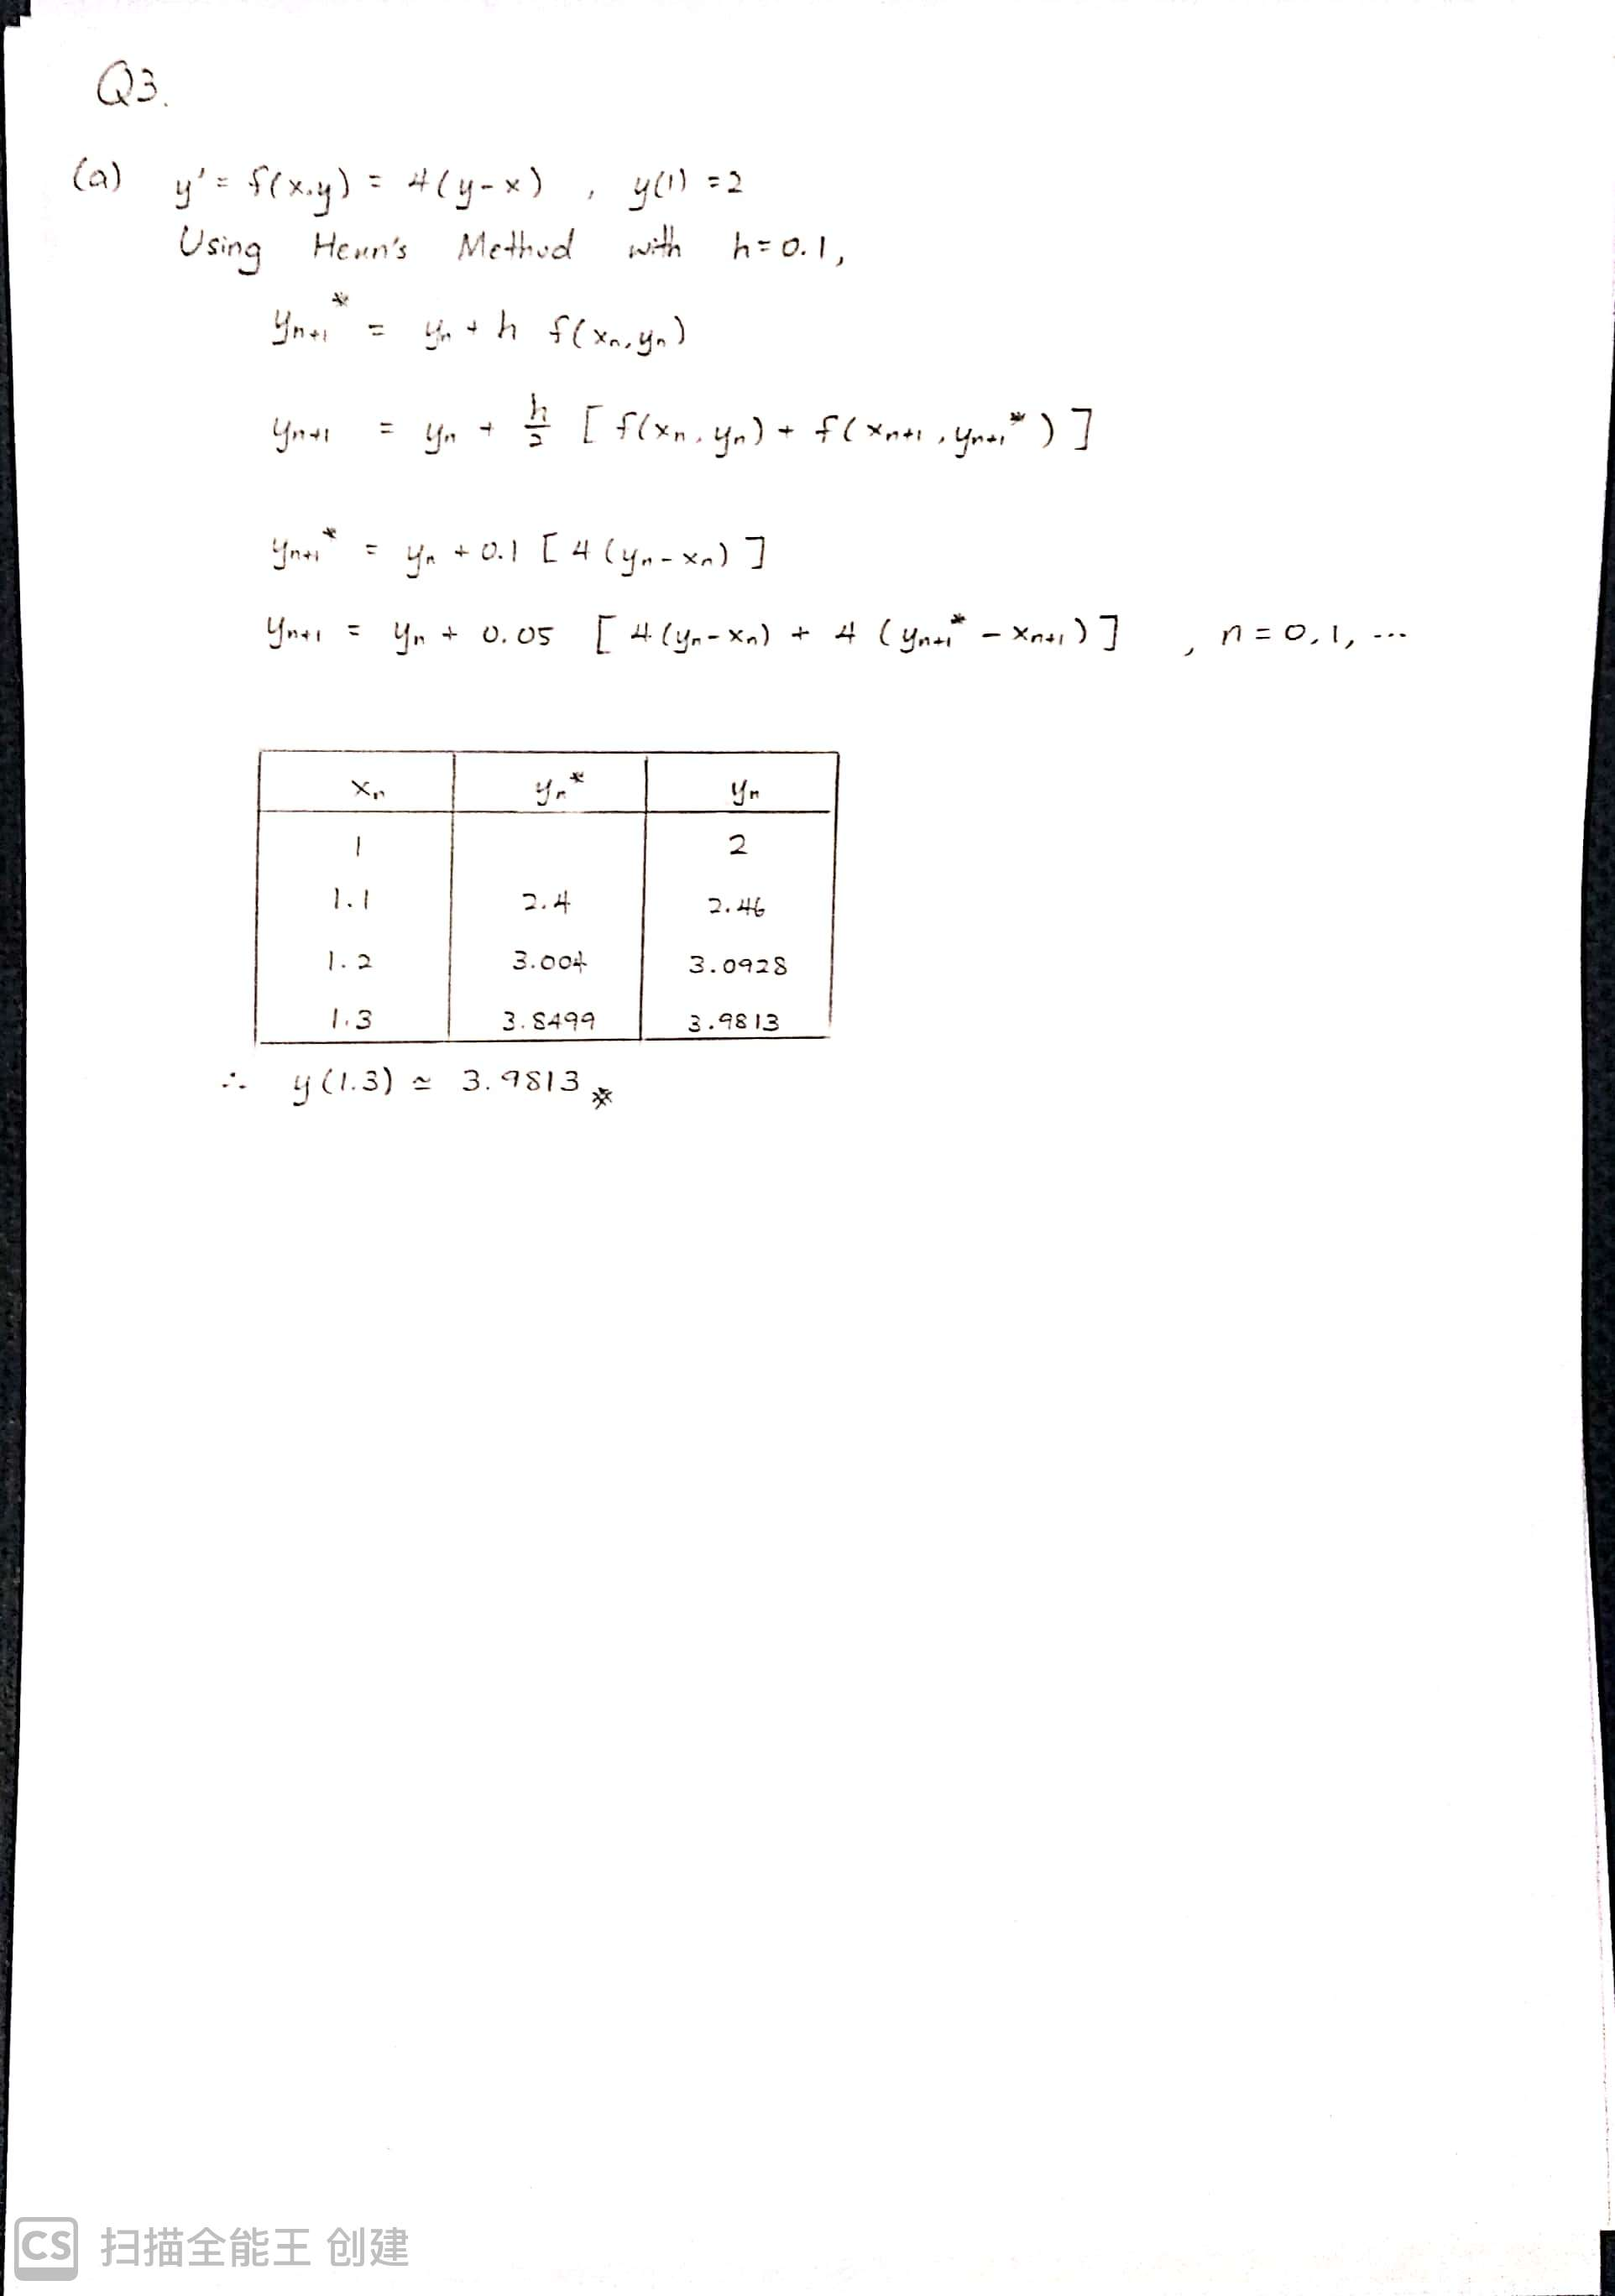 Q3.
(a) y' = f(x,y) = 4(y-x) , y(1) = 2
Using Heun's Method with h = 0.1,
yₙ₊₁* = yₙ + h f(xₙ, yₙ)
yₙ₊₁ = yₙ + h/2 [ f(xₙ, yₙ) + f(xₙ₊₁, yₙ₊₁*) ]
yₙ₊₁* = yₙ + 0.1 [ 4(yₙ - xₙ) ]
yₙ₊₁ = yₙ + 0.05 [ 4(yₙ - xₙ) + 4(yₙ₊₁* - xₙ₊₁) ] , n = 0, 1, ...
xₙ yₙ* yₙ
1 2
1.1 2.4 2.46
1.2 3.004 3.0928
1.3 3.8499 3.9813
∴ y(1.3) ≃ 3.9813 ※
CS 扫描全能王 创建